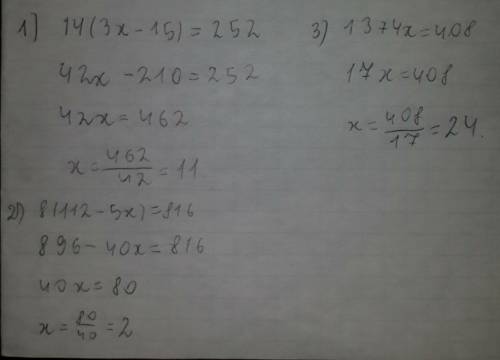 1) 14(3x-15)=252
42x-210=252
42x=462
x=462/42=11
2) 8(112-5x)=816
896-40x=816
40x=80
x=80/40=2
3) 1374x=408
17x=408
x=408/17=24.